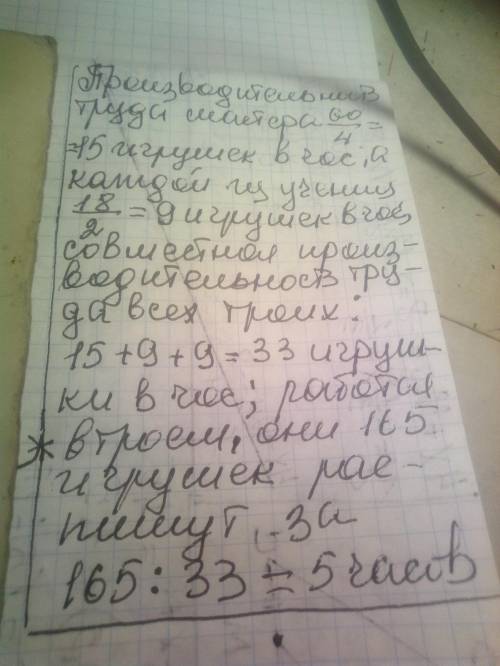 Производительность
труда мастера 60/4 =
=15 игрушек в час, а
каждой из учениц
18/2 = 9 игрушек в час,
совместная произ-
водительность тру-
да всех троих:
15+9+9=33 игруш-
ки в час; работая
* втроем, они 165
игрушек рас-
пишут за
165:33=5 часов